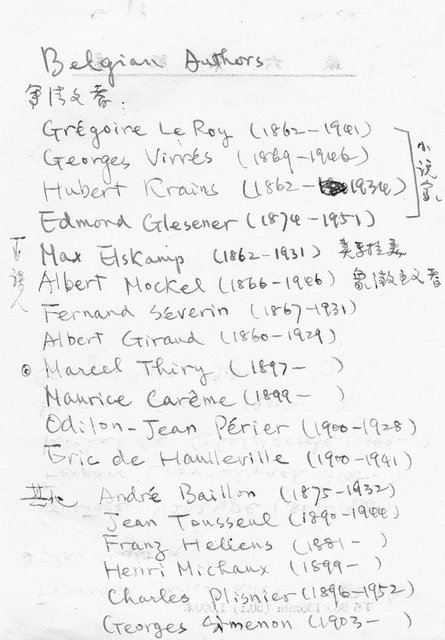 Belgian Authors
Grégoire Le Roy (1862-1941)
Georges Virrès (1869-1946)
小说家
Hubert Krains (1862-1934)
Edmond Glesener (1874-1951)
Max Elskamp (1862-1931)
Albert Mockel (1866-1946) 象徵主义者
Fernand Séverin (1867-1931)
Albert Giraud (1860-1929)
Marcel Thiry (1897- )
Maurice Carême (1899- )
Odilon-Jean Périer (1900-1928)
Eric de Haulleville (1900-1941)
其他 André Baillon (1875-1932)
Jean Tousseul (1890-1944)
Franz Hellens (1881- )
Henri Michaux (1899- )
Charles Plisnier (1896-1952)
Georges Simenon (1903- )